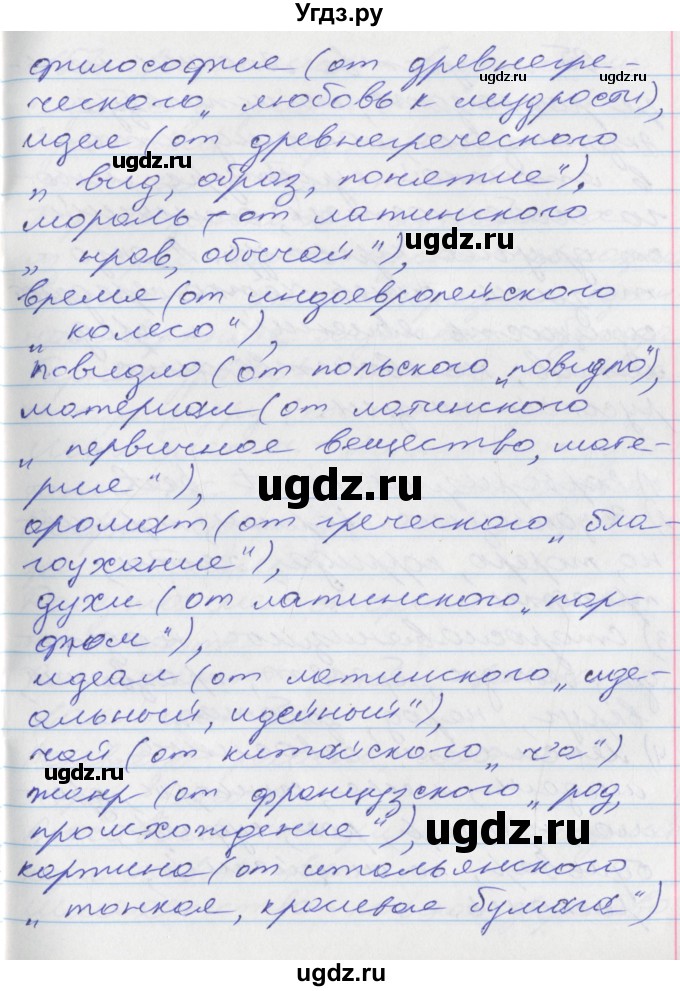 Угдз.ру
философия (от древнегре-
ческого „ любовь к мудрости),
ugdz.ru
идея (от древнегреческого
ugdz.ru
„ вид, образ, понятие“),
мораль (от латинского
ugdz.ru
„ нрав, обычай“),
время (от индоевропейского
„ колесо“),
повидло (от польского „повидло“),
материал (от латинского
„ первичное вещество, мате-
рия“),
ugdz.ru
аромат (от греческого „ бла-
гоухание“),
духи (от латинского „ пар-
фюм“),
идеал (от латинского „ иде-
альный, идейный“),
чай (от китайского „ ч’а“)
ugdz.ru
жанр (от французского „ род,
происхождение“),
ugdz.ru
картина (от итальянского
„ тонкая, красивая бумага“)
ugdz.ru